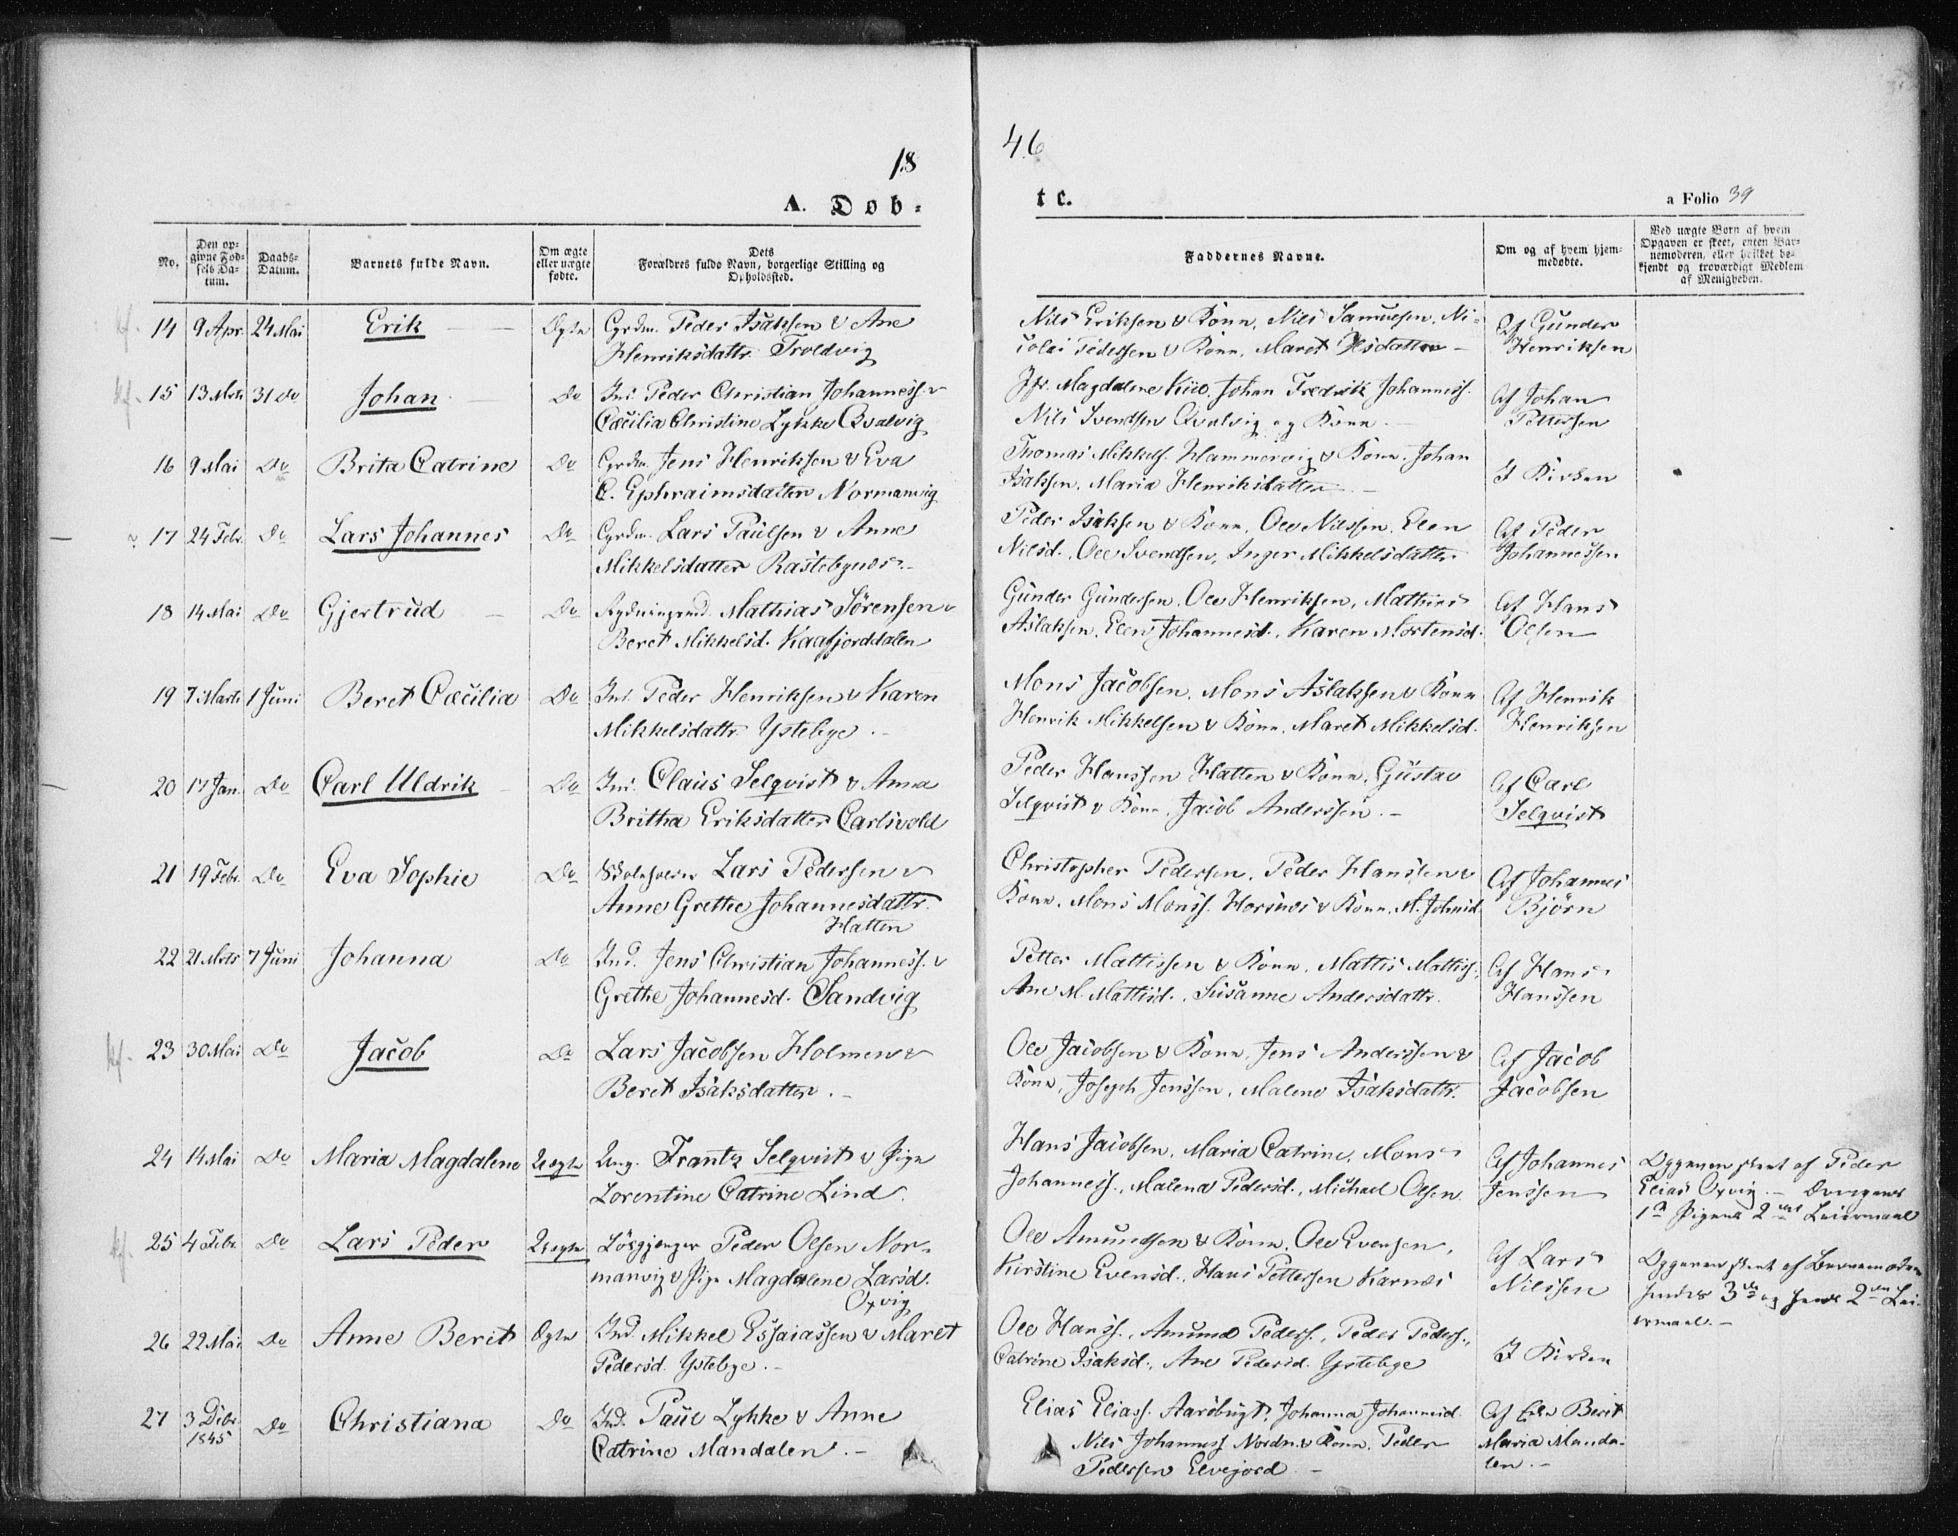 18
46
A. Dob-
te.
a Folio 39
No.
Den op-
givne Fød-
sels Da-
tum.
Daabs-
Datum.
Barnets fulde Navn.
Om ægte
eller uægte
fødte.
Dets
Forældres fulde Navn, borgerlige Stilling og
Opholdssted.
Faddernes Navne.
Om og af hvem hjem-
medøbte.
Ved uægte Børn af hvem
Opgaven er skeet, enten Bar-
nemoderen, eller hvilket be-
kjendt og troværdigt Medlem
af Menigheden.
14 9 Apr. 24 Mai Erik Ægte Grdm. Peder Isaksen & Ane
Henriksdattr. Troldvig
Nils Eriksen & Kone, Nils Samuelsen, Ni-
colai Pedersen & Kone, Maret
Af Gunder
Henriksen
15 13 Mrts 31 Do Johan Do Ind. Peder Christian Johanness. &
Cæcilia Christine Lykke Qvalvig
Jfr. Magdalene Kiil, Johan Fredrik Johanness.
Nils Svendsen Qvalvig og Kone.
Af Johan
Pettersen
16 9 Mai Do Brita Catrine Do Grdm. Jens Henriksen & Eva
C. Ephraimsdatter Normanvig
Thomas Mikkels. Hammervig & Kone, Johan
Isaksen, Maria Henriksdatter.
I Kirken
17 24 Febr. Do Lars Johannes Do Grdm. Lars Paulsen & Anne
Mikkelsdatter Rastebynes.
Peder Isaksen & Kone, Ole Nilssen, Elen
Nilsd., Ole Svendsen, Inger Mikkelsdatter
Af Peder
Johannessen
18 14 Mai Do Gjertrud Do Rydningsmd. Mathias Sørensen &
Beret Mikkelsd. Kaafjorddalen
Gunder Gundersen, Ole Henriksen, Mathias
Aslaksen, Elen Johannesd., Karen Mortensd.
Af Hans
Olsen
19 7 Marts 1 Juni Beret Cæcilia Do Ind. Peder Henriksen & Karen
Mikkelsdattr. Ystebye.
Mons Jacobsen, Mons Aslaksen & Kone
Henrik Mikkelsen & Kone, Maret Mikkelsd.
Af Henrik
Henriksen
20 17 Jan. Do Carl Uldrik Do Ind. Claus Selqvist & Anna
Britha Eriksdatter Carlsvold
Peder Hanssen Hatten & Kone, Gustav
Selqvist & Kone, Jacob Anderssen.
Af Carl
Selqvist
21 19 Febr. Do Eva Sophie Do Skoleholder Lars Pedersen &
Anne Grethe Johannesdattr.
Hatten
Christopher Pedersen, Peder Hanssen &
Kone, Mons Monss. Horsnes & Kone, M. Johnsd.
Af Johannes
Björn
22 21 Mrts 7 Juni Johanna Do Ind. Jens Christian Johanness. &
Grethe Johannesd. Sandvig
Petter Mattissen & Kone, Mattis Mattiss.,
Ane M. Mattisd., Susanne Andersdattr.
Af Hans
Hanssen
23 30 Mai Do Jacob Do Lars Jacobsen Holmen &
Beret Isaksdatter.
Ole Jacobsen & Kone, Jens Anderssen &
Kone, Joseph Jenssen, Malene Isaksdattr.
Af Jacob
Jacobsen
24 14 Mai Do Maria Magdalene Uægte Ung. Frantz Selqvist & Pige
Lorentine Catrine Lind.
Hans Jacobsen, Maria Catrine, Mons
Johanness., Malena Pedersd., Michael Olsen
Af Johannes
Jenssen
Opgaven skeet af Peder
Elias Oxvig.
1ste Pigens 2det Leiermaal
25 4 Febr. Do Lars Peder Uægte Løsgjenger Peder Olsen Nor-
manvig & Pige Magdalene Larsd.
Oxvig
Ole Amundsen & Kone, Ole Evensen,
Kirstine Evensd., Hans Pettersen Karnæs
Af Lars
Nilssen
Opgaven skeet af Barnemoderen
hendes 3die og hans 2det Lei-
ermaal.
26 22 Mai Do Anne Berit Ægte Ind. Mikkel Essaiassen & Maret
Pedersd. Ystebye.
Ole Hanss., Amund Peders., Peder Peders.,
Catrine Isaksd., Ane Pedersd. Ystebye
I Kirken
27 3 Debr.
1845 Do Christiana Do Ind. Paul Lykke & Anne
Catrine Mandalen.
Elias Eliass. Aarøbugt, Johanna Johannesd.
Nils Johanness. Nordm. & Kone, Peder
Pedersen Elvejord
Af Elen Berit
Maria Manda-
len.